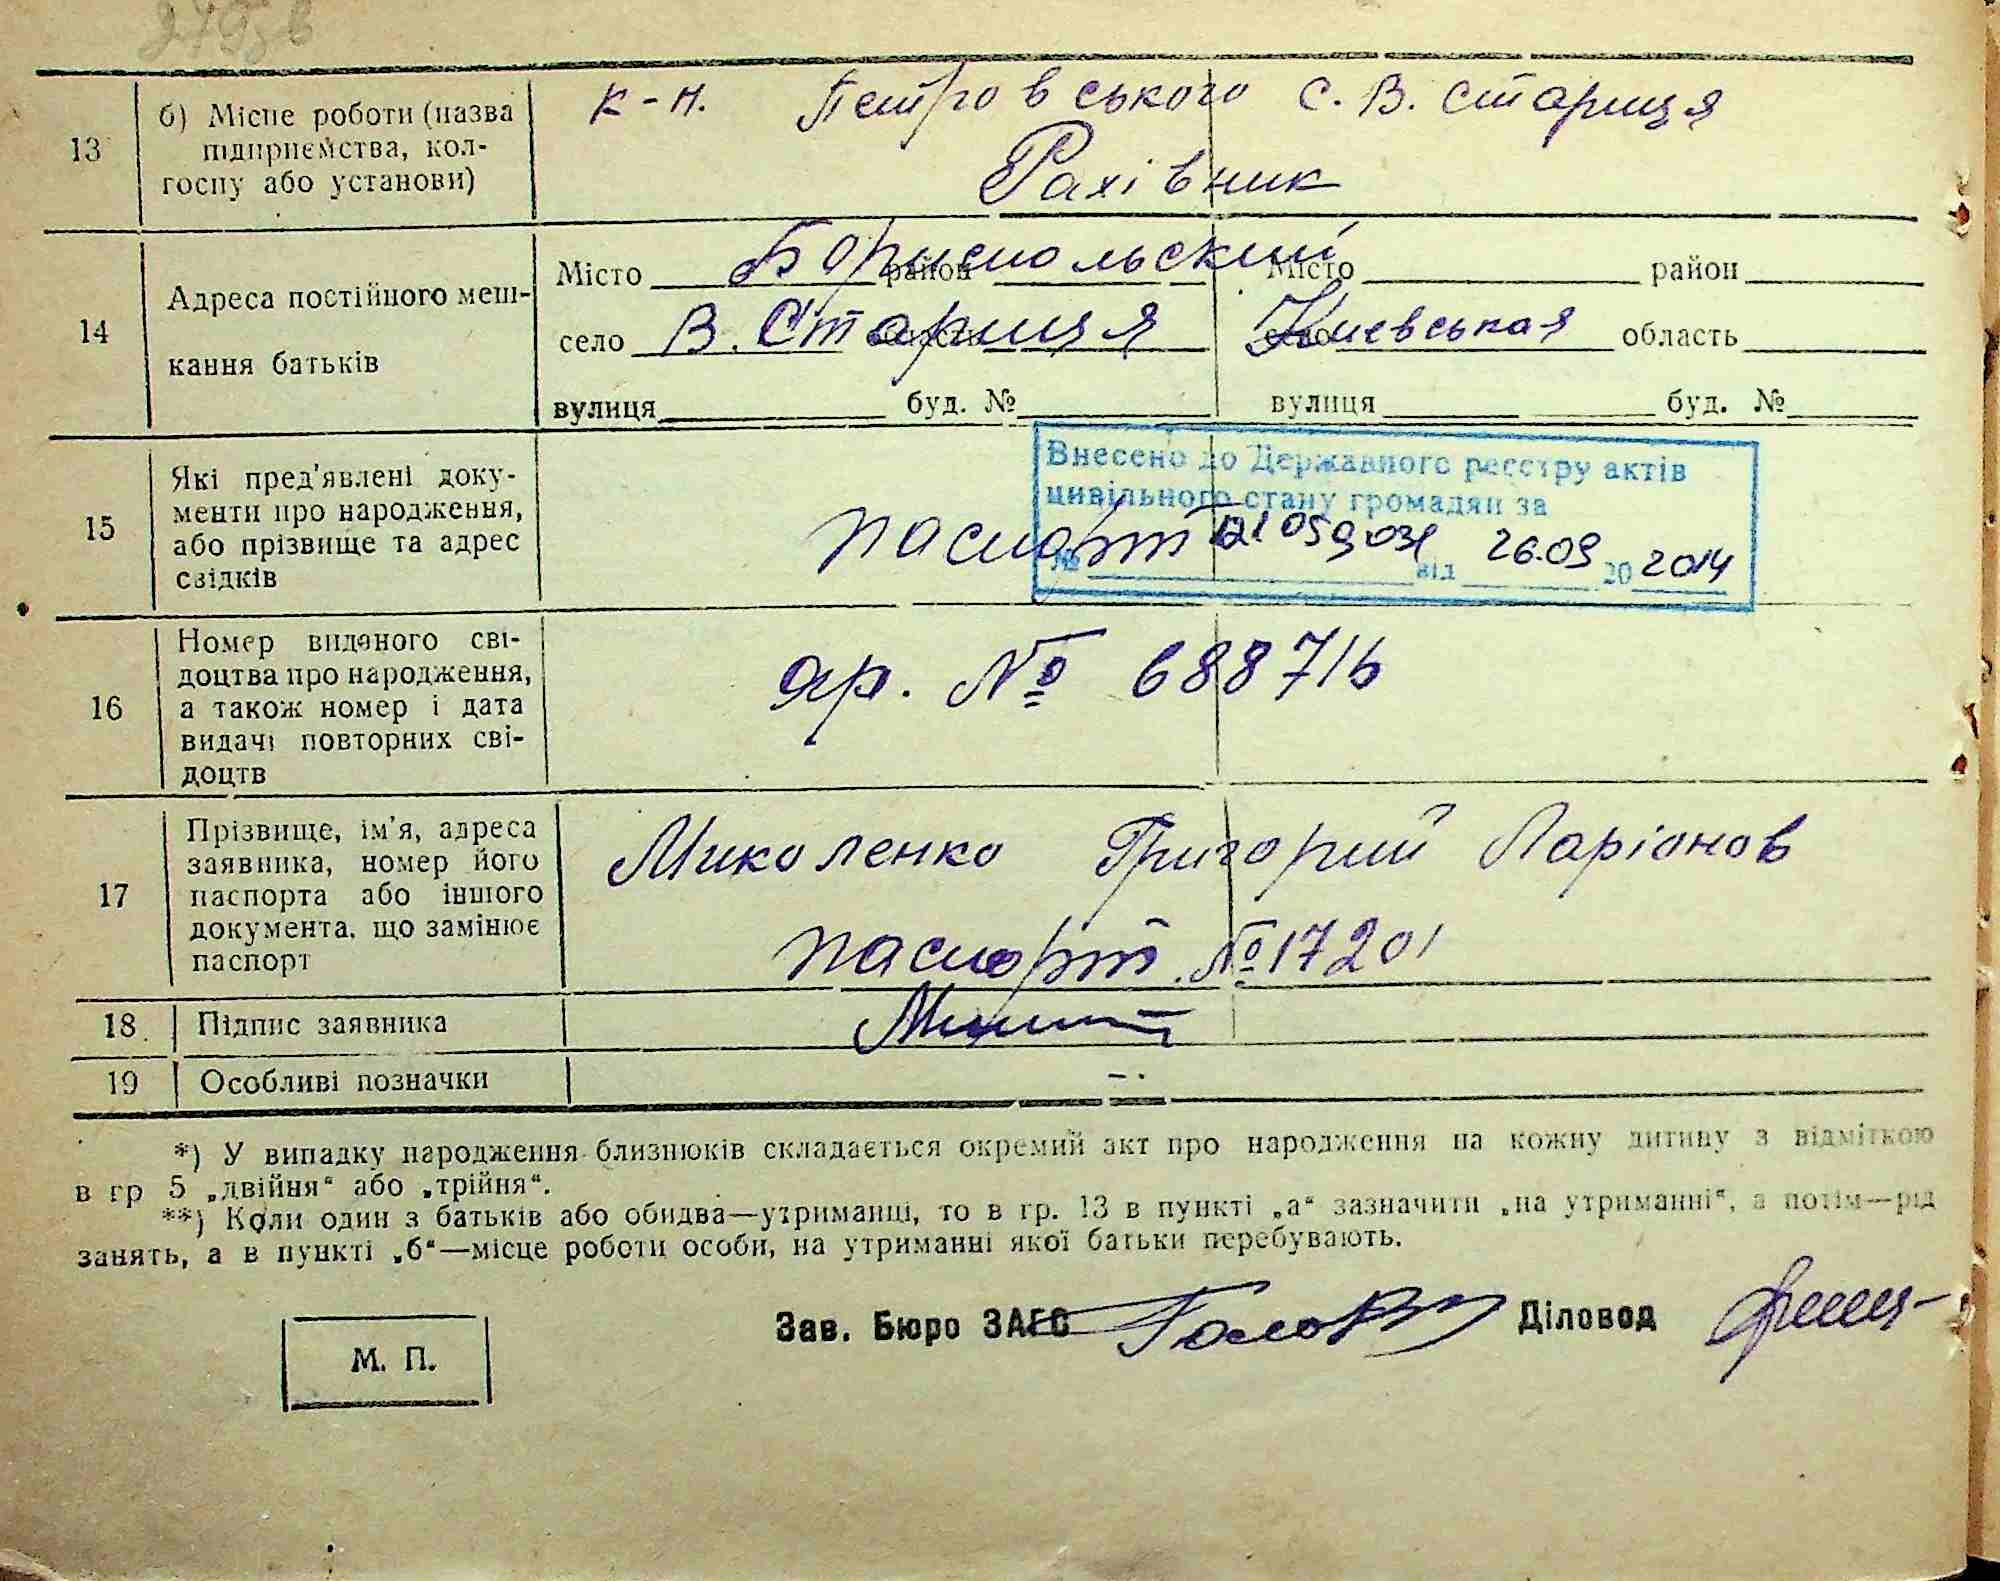 13
б) Місце роботи (назва
підприємства, кол-
госпу або установи)
к-п. Петровського с. В. Стариця
Рахівник
14
Адреса постійного меш-
кання батьків
Місто Бориспольский район Місто район
село В. Стариця область село Киевськая область
вулиця буд. № вулиця буд. №
15
Які пред'явлені доку-
менти про народження,
або прізвище та адрес
свідків
паспорт
Внесено до Державного реєстру актів
цивільного стану громадян за
№ від 26.09 20 2014
16
Номер виданого сві-
доцтва про народження,
а також номер і дата
видачі повторних сві-
доцтв
яр. № 688716
17
Прізвище, ім'я, адреса
заявника, номер його
паспорта або іншого
документа, що замінює
паспорт
Миколенко Григорий Ларіонов
паспорт. № 17201
18. Підпис заявника
19 Особливі позначки
*) У випадку народження близнюків складається окремий акт про народження на кожну дитину з відміткою
в гр 5 „двійня“ або „трійня“.
**) Коли один з батьків або обидва—утриманці, то в гр. 13 в пункті „а“ зазначити „на утриманні“, а потім—рід
занять, а в пункті „б“—місце роботи особи, на утриманні якої батьки перебувають.
М. П.
Зав. Бюро ЗАГС Діловод